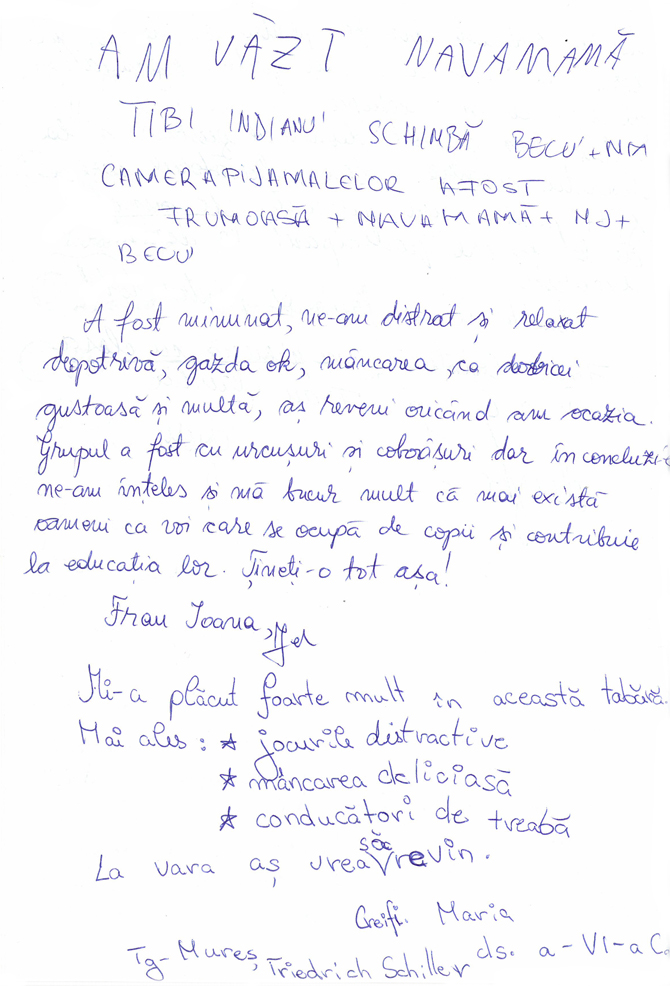 AM VĂZT NAVAMAMĂ
TIBI INDIANU' SCHIMBĂ BECU'+NM
CAMERAPIJAMALELOR AFOST
FRUMOASĂ + NAVAMAMĂ+ NJ+
BECU'
A fost minunat, ne-am distrat și relaxat
deopotrivă, gazda ok, mâncarea, ca deobicei
gustoasă și multă, aș reveni oricând am ocazia.
Grupul a fost cu urcușuri si coborâșuri dar în concluzie
ne-am înțeles și mă bucur mult că mai există
oameni ca voi care se ocupă de copii și contribuie
la educația lor. Țineți-o tot așa!
Frau Ioana,
Mi-a plăcut foarte mult în această tabără.
Mai ales: * jocurile distractive
* mâncarea deliciasă
* conducători de treabă
La vara aș vrea să revin.
Maria
Tg-Mureș, Friedrich Schiller cls. a-VI-a C.